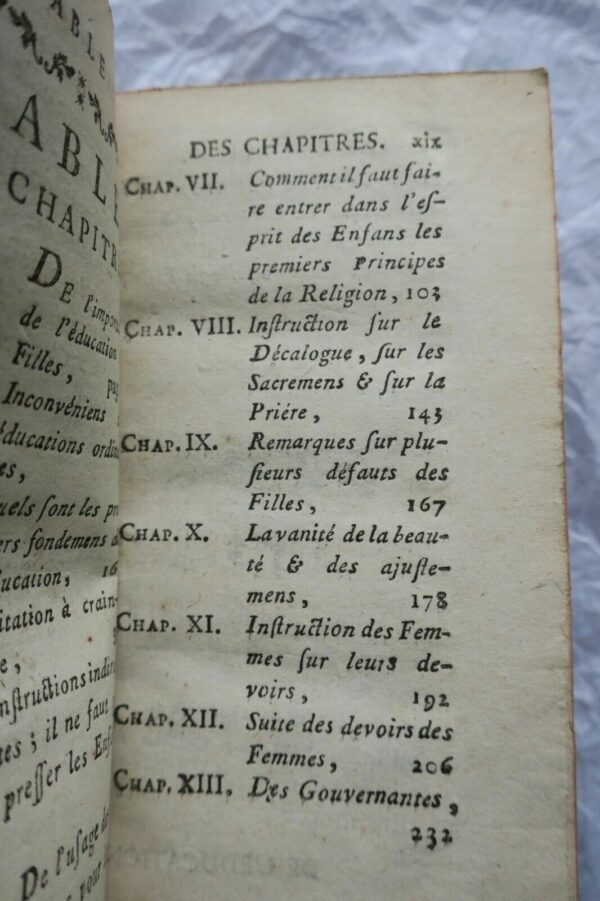 ABLE
ABLE
CHAPITR
DE l'impor
de l'éducation
Filles, pag
Inconvéniens
éducations ordin
es,
uels ſont les pr
ers fondemens d
ducation, 16
itation à crain-
e ;
nſtructions indir
tes ; il ne faut
preſſer les Enf
De l'uſage de
pour
DES CHAPITRES. xix
CHAP. VII. Comment il faut fai-
re entrer dans l'eſ-
prit des Enfans les
premiers Principes
de la Religion, 103
CHAP. VIII. Inſtruction ſur le
Décalogue, ſur les
Sacremens & ſur la
Priére, 143
CHAP. IX. Remarques ſur plu-
ſieurs défauts des
Filles, 167
CHAP. X. La vanité de la beau-
té & des ajuſte-
mens, 178
CHAP. XI. Inſtruction des Fem-
mes ſur leurs de-
voirs, 192
CHAP. XII. Suite des devoirs des
Femmes, 206
CHAP. XIII. Des Gouvernantes,
232